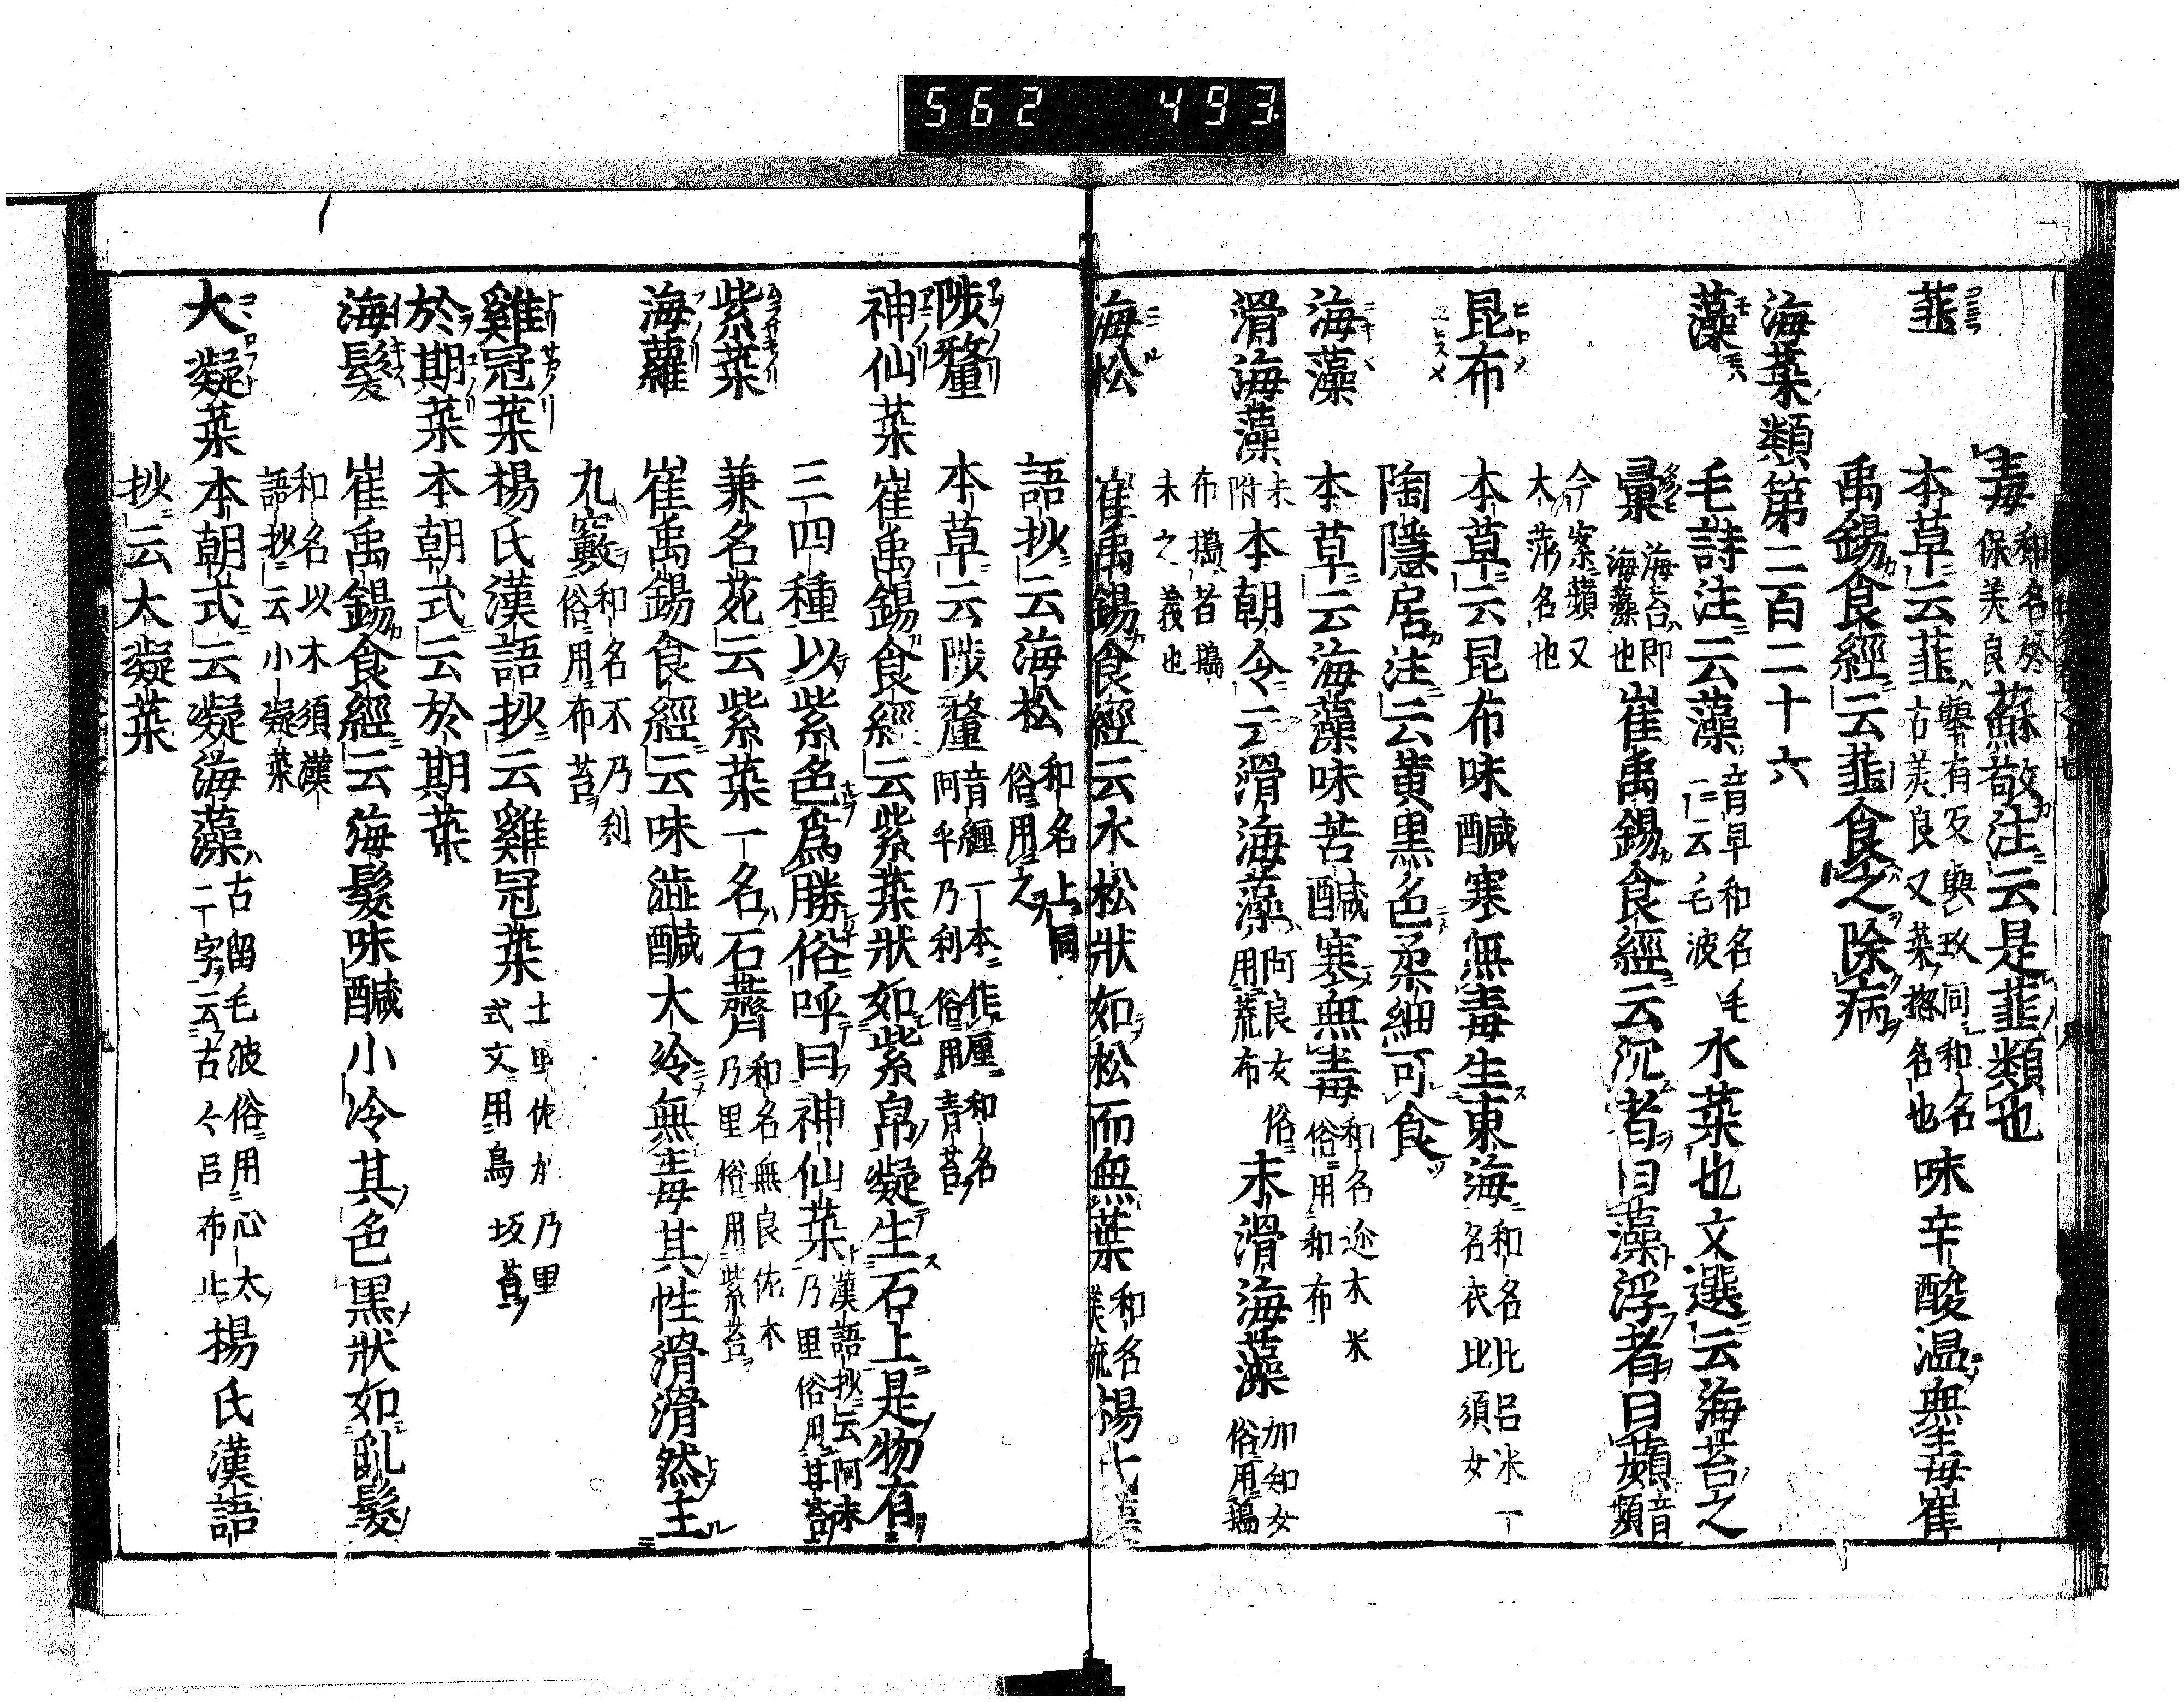 562 493.
毒和名於保美良蘇敬注云是韮類也
韮 本草云韮擧有反與玖同和名古美良又菜擦名也味辛酸温無毒崔
禹錫食經云韮食之除病
海菜類第二百二十六
藻 毛詩注云藻音早和名毛一云毛波水菜也文選云海苔之
彙海苔即海藻也崔禹錫食經云沉者曰藻浮者曰蘋音頻
今案蘋又大萍名也
昆布 本草云昆布味醎寒無毒生東海和名比呂米一名衣比須女
陶隱居注云黄黒色柔細可食
海藻 本草云海藻味苦醎寒無毒和名迩木米俗用和布
滑海藻末附 本朝令云滑海藻阿良女俗用荒布 末滑海藻加知女俗用搗
布搗者搗末之義也
海松 崔禹錫食經云水松狀如松而無葉和名楊氏漢
語抄云海松和名上同俗用之
陟釐 本草云陟釐音纏一本作厘和名阿乎乃利俗用青苔
神仙菜 崔禹錫食經云紫菜狀如紫帛凝生石上是物有
三四種以紫色爲勝俗呼曰神仙菜漢語抄云阿末乃里俗用甘苔
紫菜 兼名苑云紫菜一名石薺和名無良佐木乃里俗用紫苔
海蘿 崔禹錫食經云味澁醎大冷無毒其性滑滑然主
九竅和名不乃利俗用布苔
雞冠菜 楊氏漢語抄云雞冠菜土里佐加乃里式文用鳥坂苔
於期菜 本朝式云於期菜
海髪 崔禹錫食經云海髮味醎小冷其色黒狀如乱髮
和名以木須漢語抄云小凝菜
大凝菜 本朝式云凝海藻古留毛波俗用心太二字云古々呂布止楊氏漢語
抄云大凝菜